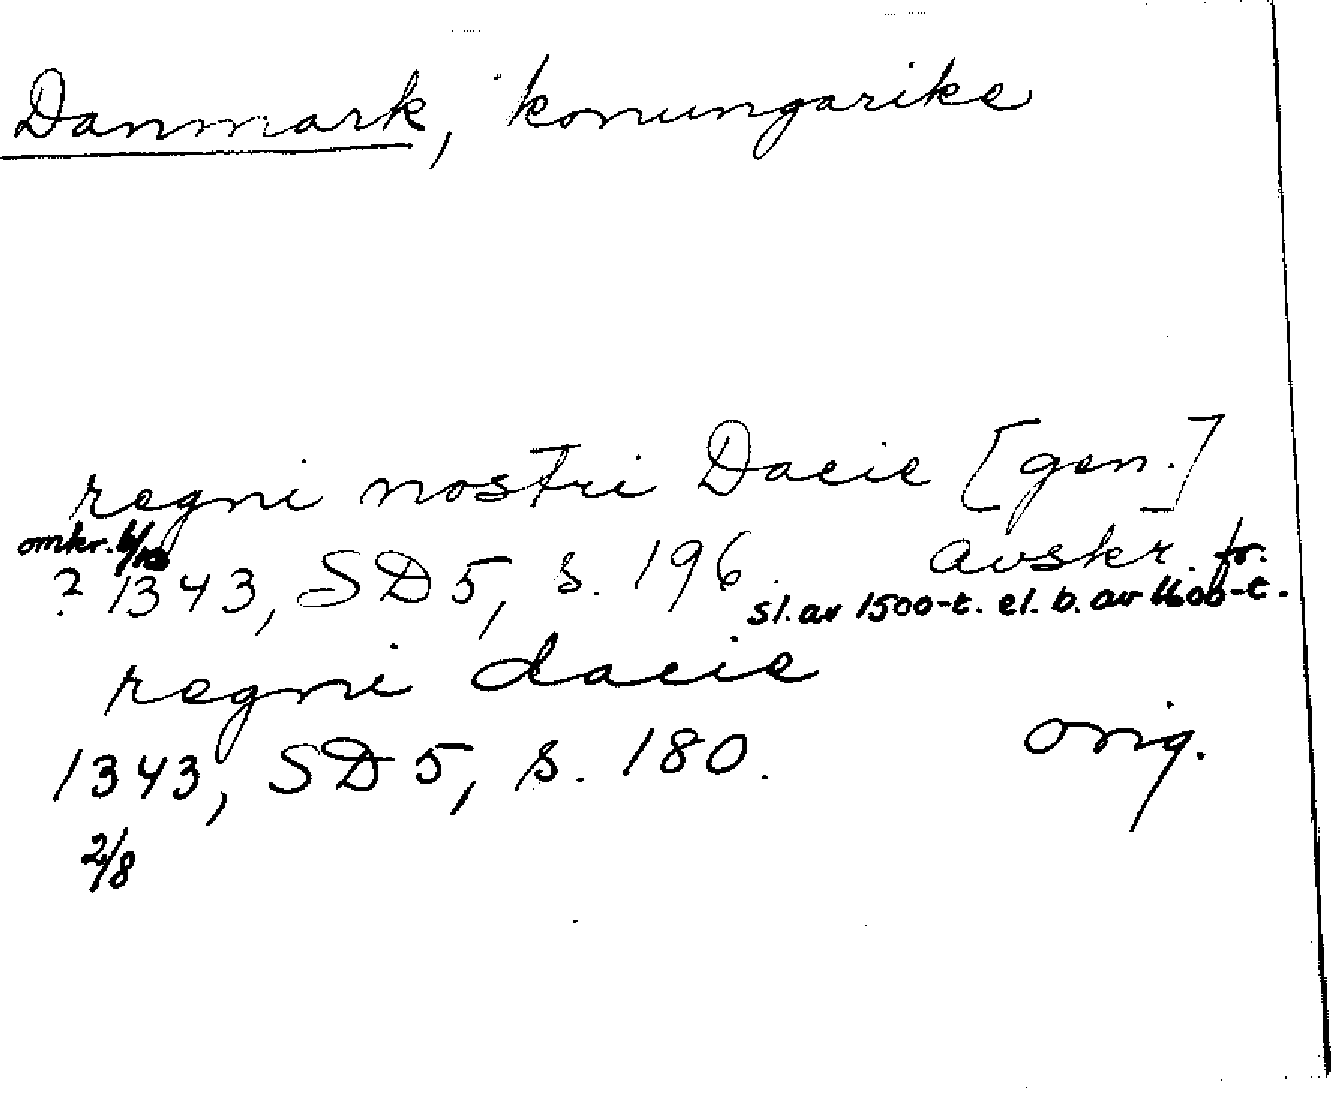 Danmark, konungarike
regni nostri Dacie [gen.]
omkr.
? 1343, SD 5, s. 196. avskr. fr.
sl. av 1500-t. el. b. av 1600-t.
regni dacie
1343, SD 5, s. 180. orig.
2/8